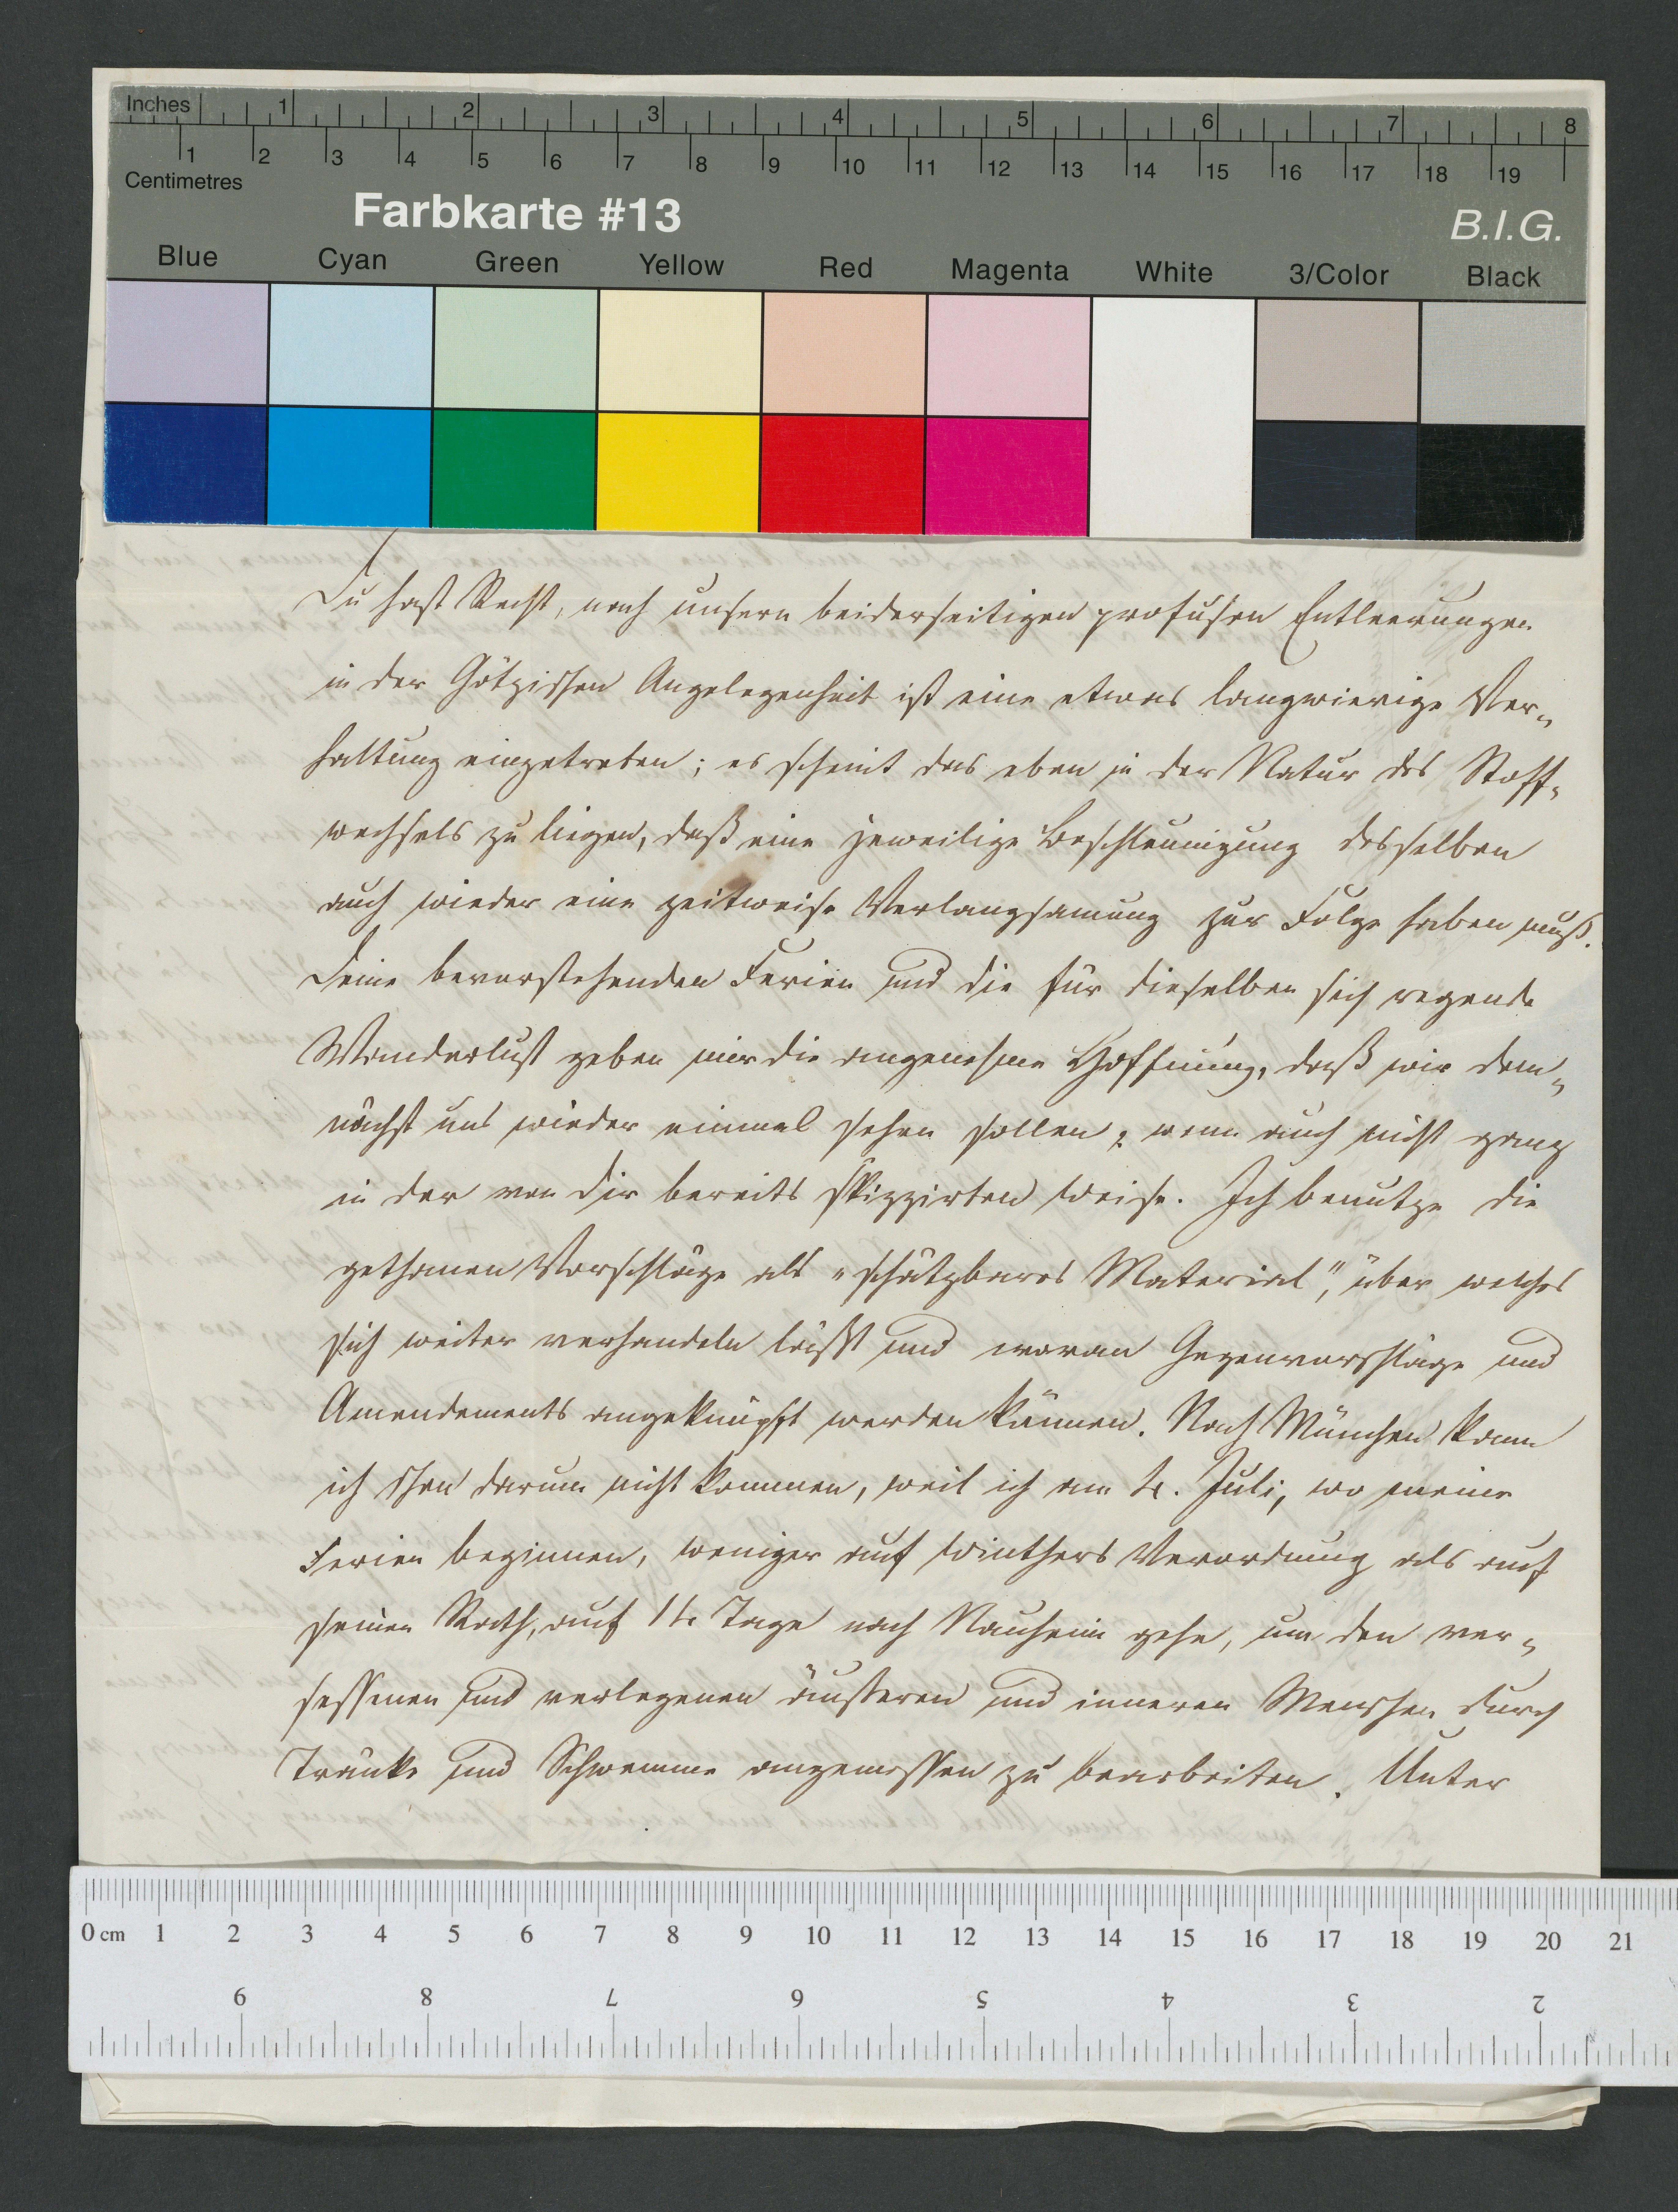 Inches 1 2 3 4 5 6 7 8
1 2 3 4 5 6 7 8 9 10 11 12 13 14 15 16 17 18 19
Centimetres
Farbkarte #13
B.I.G.
Blue Cyan Green Yellow Red Magenta White 3/Color Black
Du hast Recht, nach unsern beiderseitigen profusen Entleerungen
in der Götzischen Angelegenheit ist eine etwas langwierige Ver-
haltung eingetreten; es scheint das eben in der Natur des Stoff-
wechsels zu liegen, daß eine jeweilige Beschleunigung desselben
auch wieder eine zeitweise Verlangsamung zur Folge haben muß.
Deine bevorstehenden Ferien und die für dieselben sich regende
Wanderlust geben mir die angenehme Hoffnung, daß wir dem-
nächst uns wieder einmal sehen sollen, wenn auch nicht ganz
in der von Dir bereits skizzirten Weise. Ich benutze die
gethanen Vorschläge als „schätzbares Material", über welches
sich weiter verhandeln läßt und woran Gegenvorschläge und
Amendements angeknüpft werden können. Nach München kann
ich schon darum nicht kommen, weil ich am 4. Juli, wo meine
Ferien beginnen, weniger auf Winthers Verordnung als auf
seinen Rath, auf 14 Tage nach Nauheim gehe, um den ver-
sessenen und verlegenen äusseren und inneren Menschen durch
Tränke und Schwemme angemessen zu bearbeiten. Unter
0 cm 1 2 3 4 5 6 7 8 9 10 11 12 13 14 15 16 17 18 19 20 21
9 8 7 6 5 4 3 2